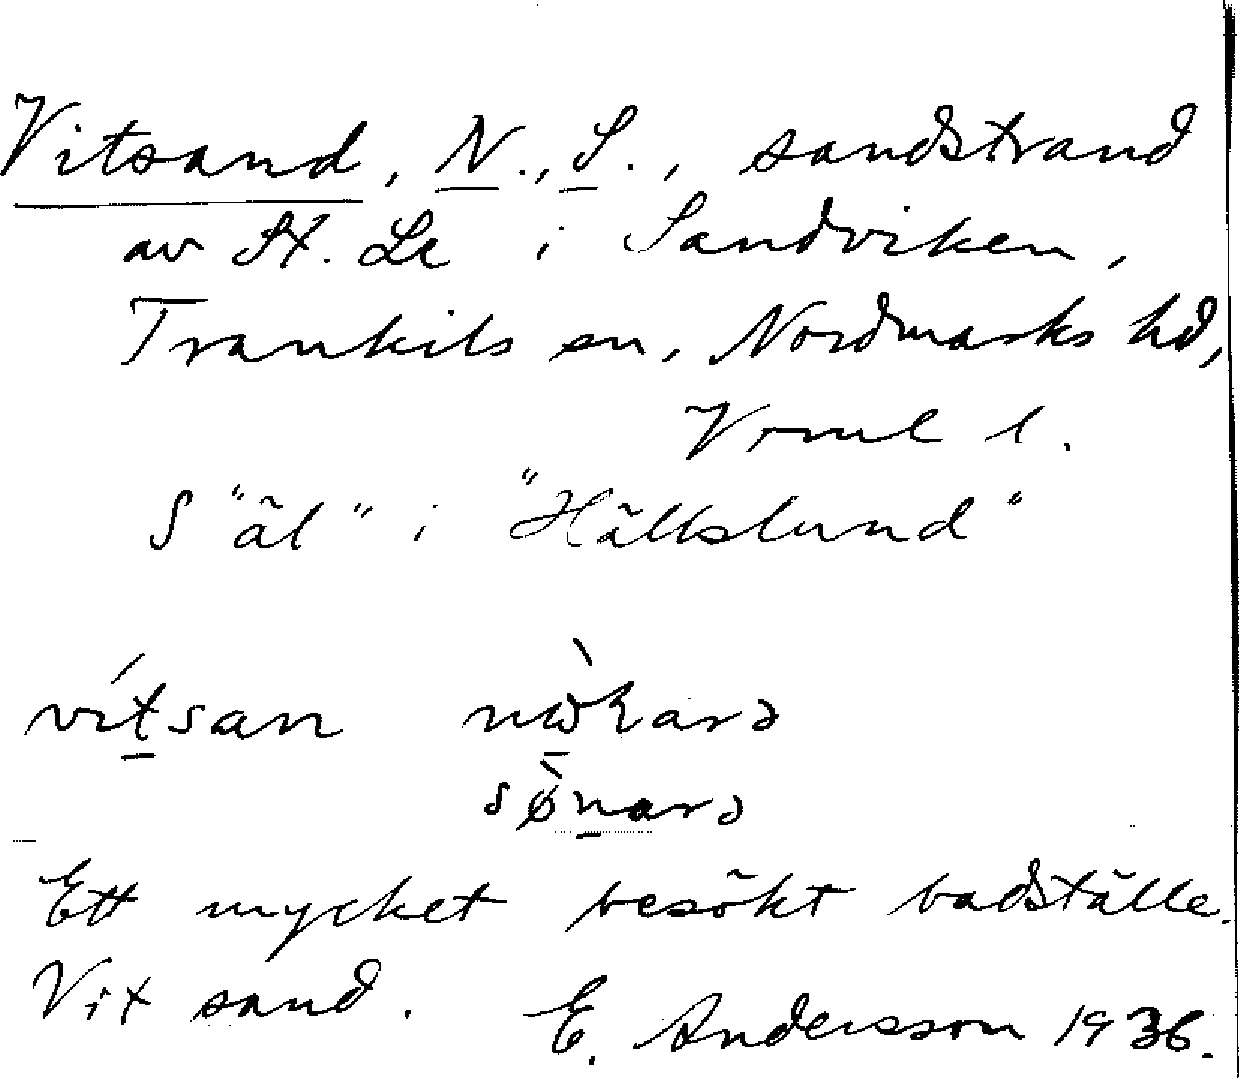 Vitsand, N., S., sandstrand
av St. Le i Sandviken,
Trankils sn, Nordmarks hd,
Vrml l.
S "äl" i "Hällslund"
vítsan nòkarə
sø̀narə
Ett mycket besökt badställe.
Vit sand. E. Andersson 1936.